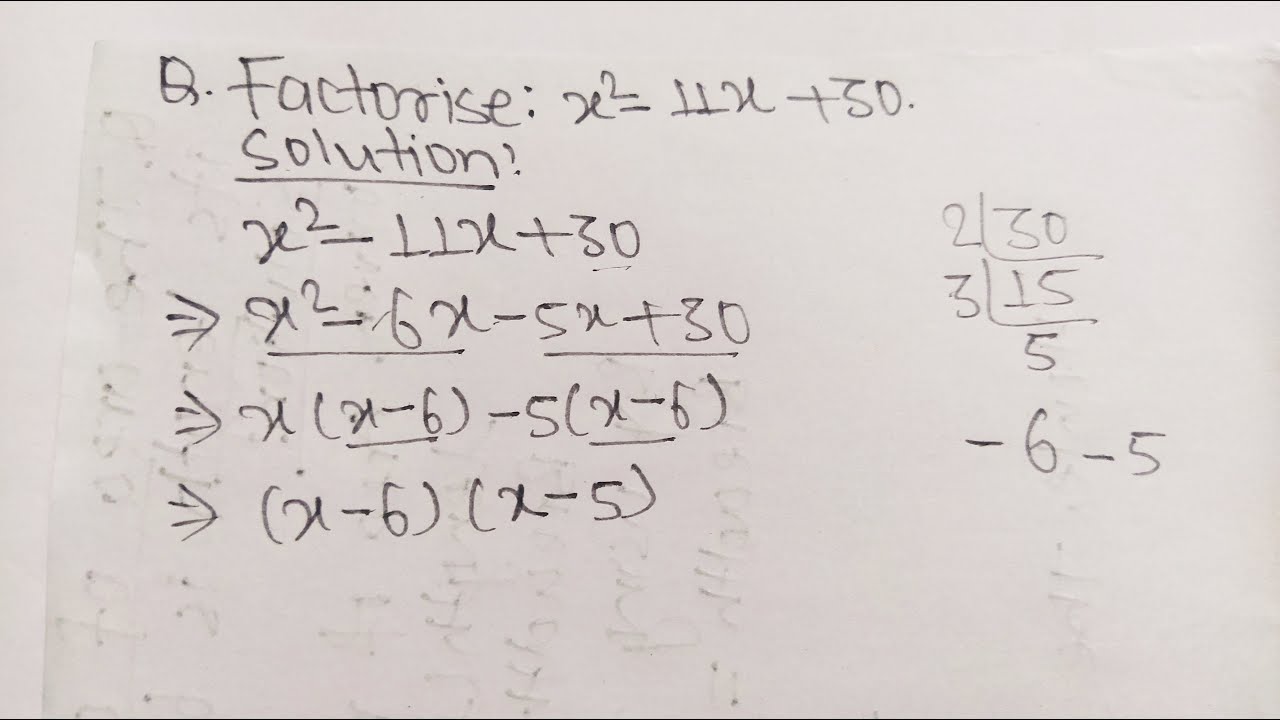 Q. Factorise: x² - 11x + 30.
Solution:
x² - 11x + 30
⇒ x² - 6x - 5x + 30
⇒ x (x - 6) - 5 (x - 6)
⇒ (x - 6) (x - 5)
2 | 30
3 | 15
5
- 6 - 5